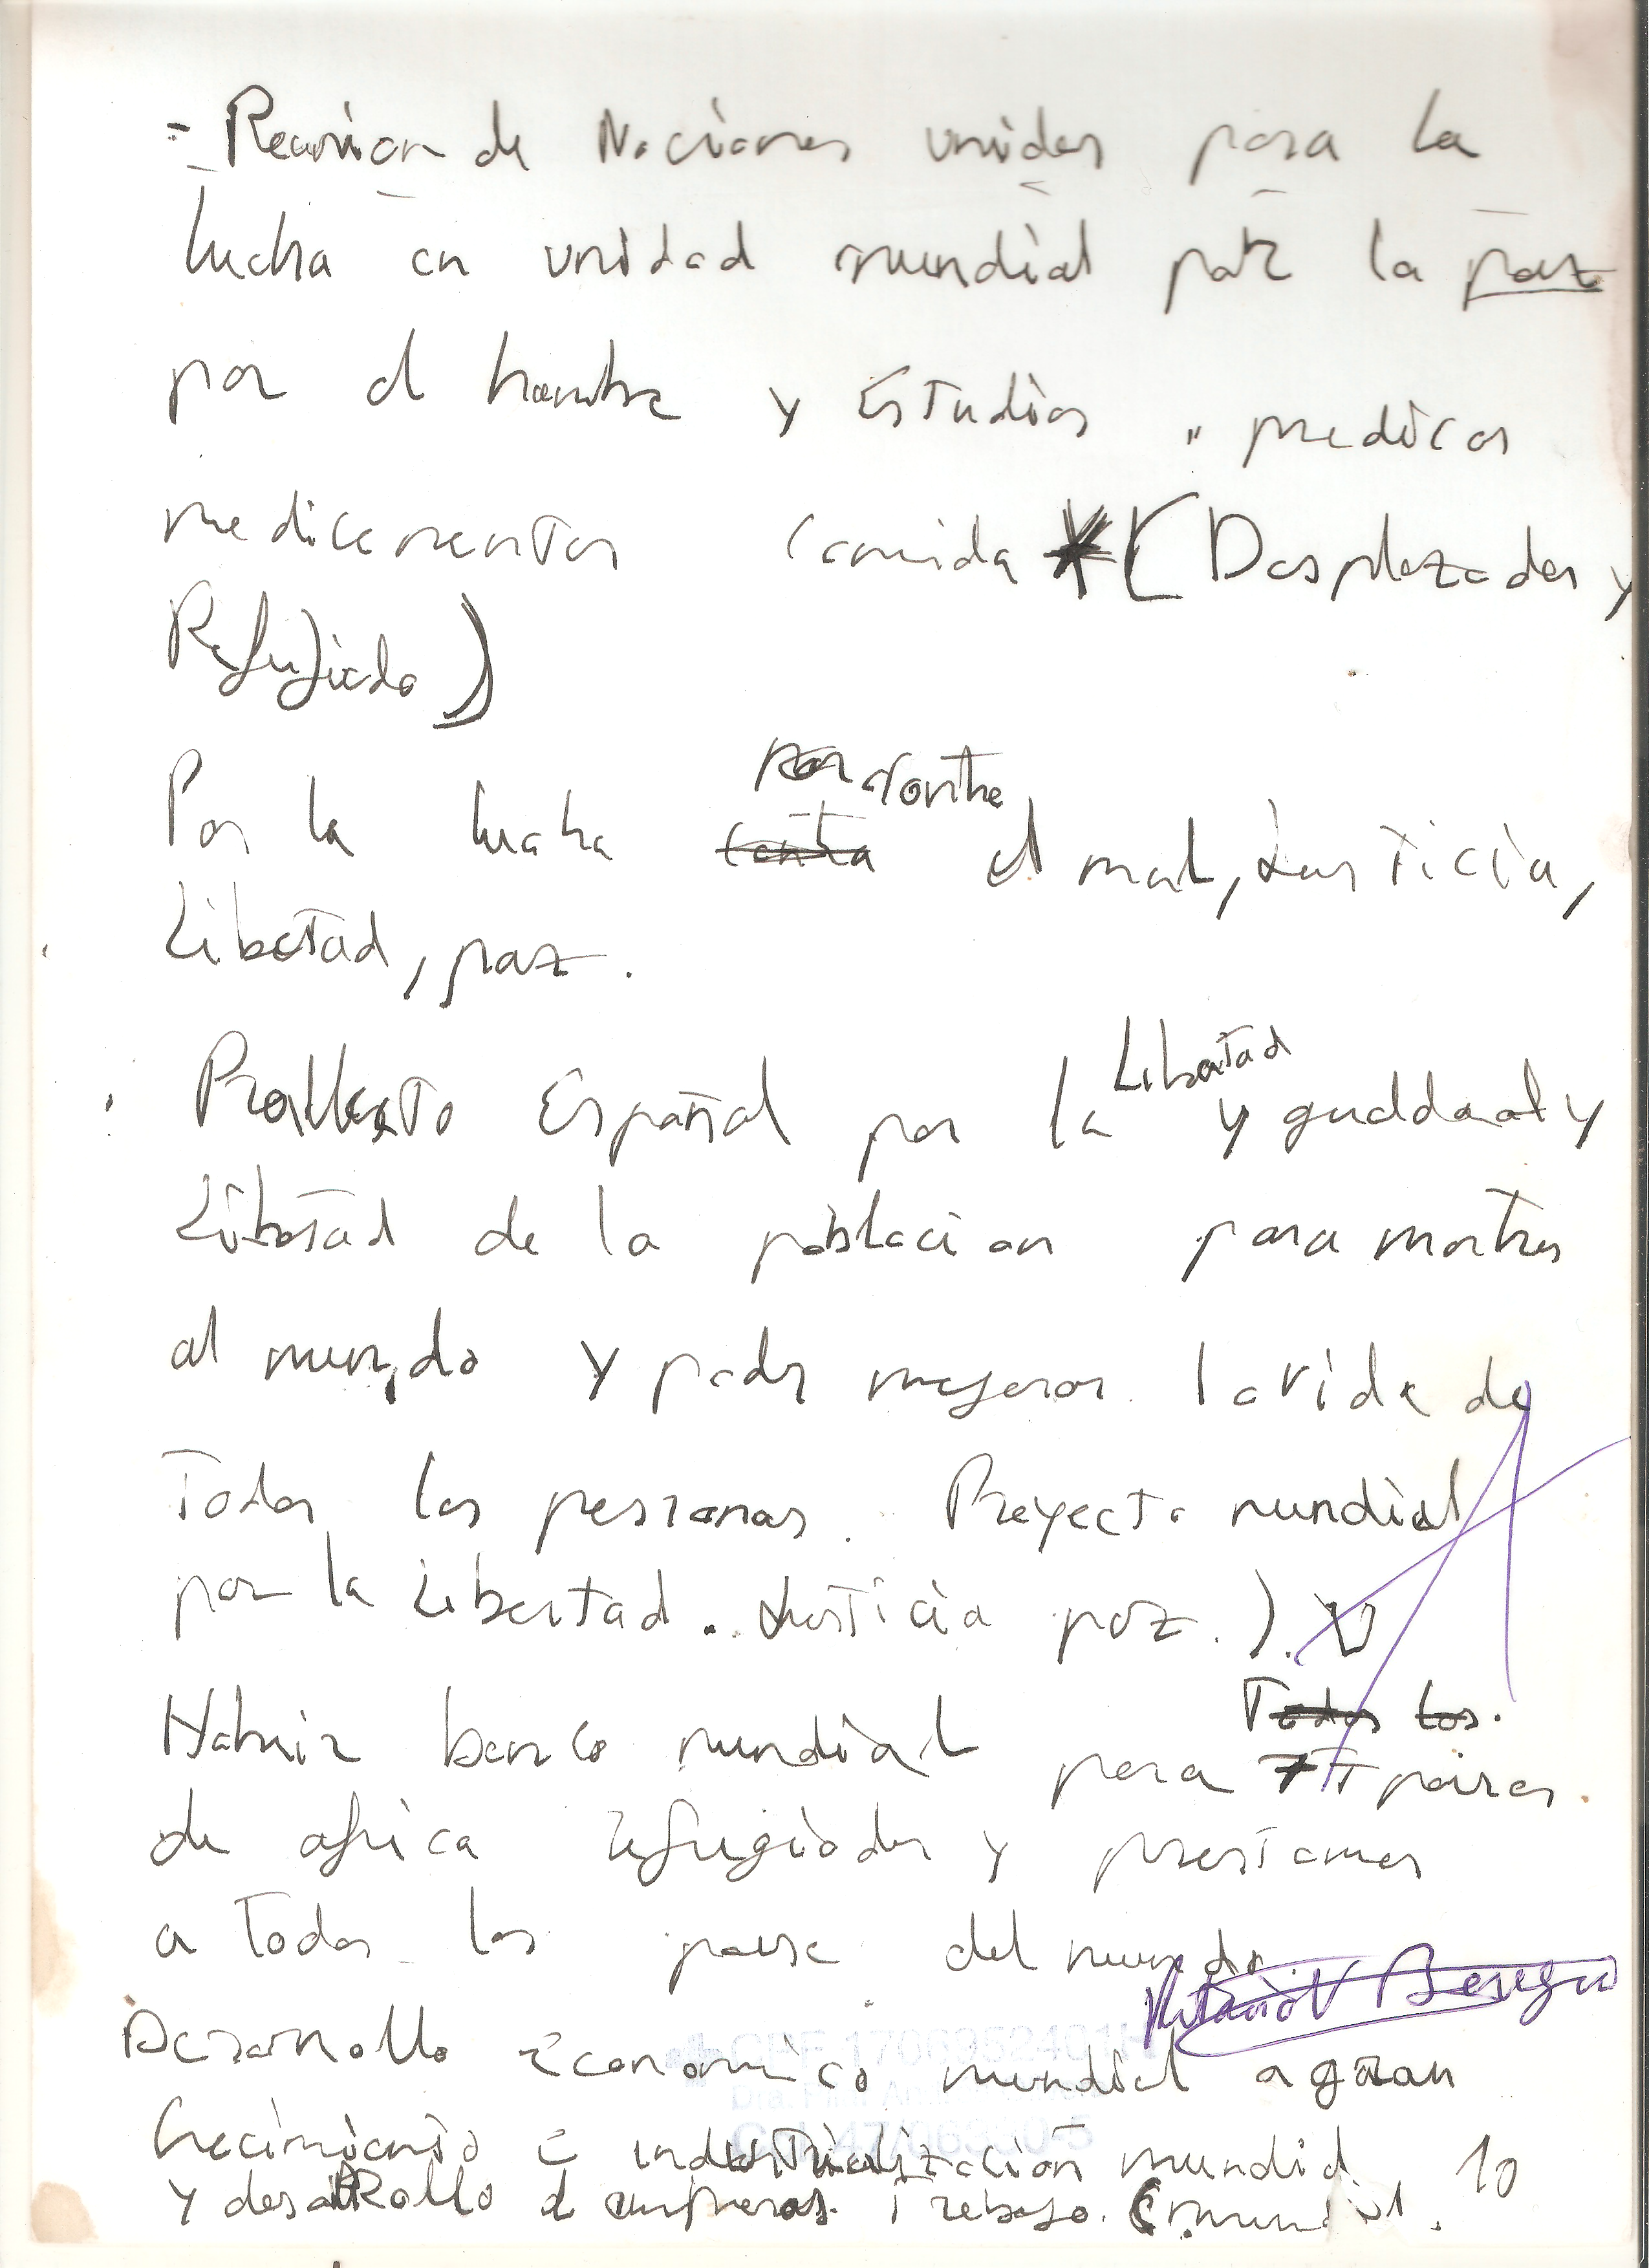 - Reunion de Naciones unidas para la
lucha en unidad mundial por la paz
por el hambre y Estudios, medicos
medicamentos comida * (Desplazados y
Refujiado)
por contra
Por la lucha contra el mal, Justicia,
Libertad, paz.
Libertad
Español por la y y
Libertad de la poblacion para mostrar
al mundo y poder mejorar la vida de
Todas las personas. Proyecto mundial
por la Libertad. Justicia paz.).
Todos los.
banco mundial para paises.
de africa refugiados y prestamos
a Todos los paise del mundo
Desarrollo Economico mundial a gran
Crecimiento e industrialización mundial
y desarrollo d empresas. Trabajo. (mundial. 10